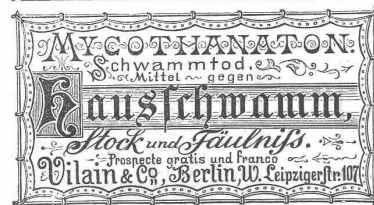 MYCOTHANATON.
Schwammtod.
Mittel ~ gegen
Hausſchwamm,
Stock und Fäulniſs.
Prospecte gratis und franco
Vilain & Co, Berlin W. Leipzigerſtr. 107